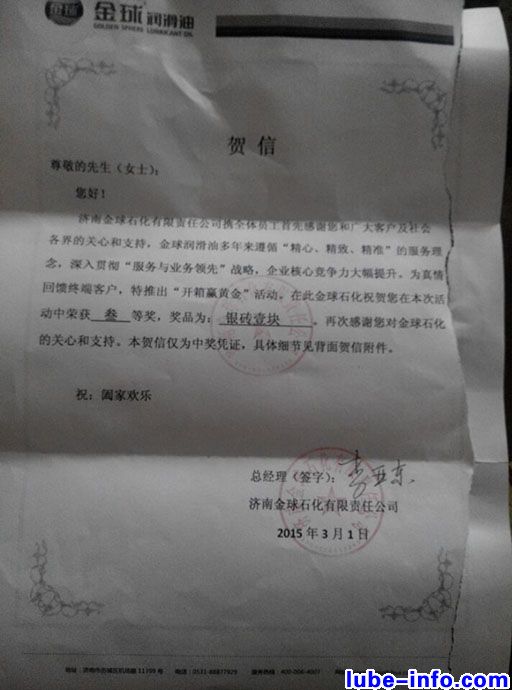 金球 金球润滑油
GOLDEN SPHERE LUBRICANT OIL
贺信
尊敬的先生(女士):
您好!
济南金球石化有限责任公司携全体员工首先感谢您和广大客户及社会
各界的关心和支持,金球润滑油多年来遵循“精心、精致、精准”的服务理
念,深入贯彻“服务与业务领先”战略,企业核心竞争力大幅提升。为真情
回馈终端客户,特推出“开箱赢黄金”活动。在此金球石化祝贺您在本次活
动中荣获 叁 等奖,奖品为: 银砖壹块 。再次感谢您对金球石化
的关心和支持。本贺信仅为中奖凭证,具体细节见背面贺信附件。
祝:阖家欢乐
总经理(签字):李亚东
济南金球石化有限责任公司
2015年3月1日
地址:济南市历城区机场路11799号 电话:0531-88877929 服务热线:400-006-4007
lube-info.com